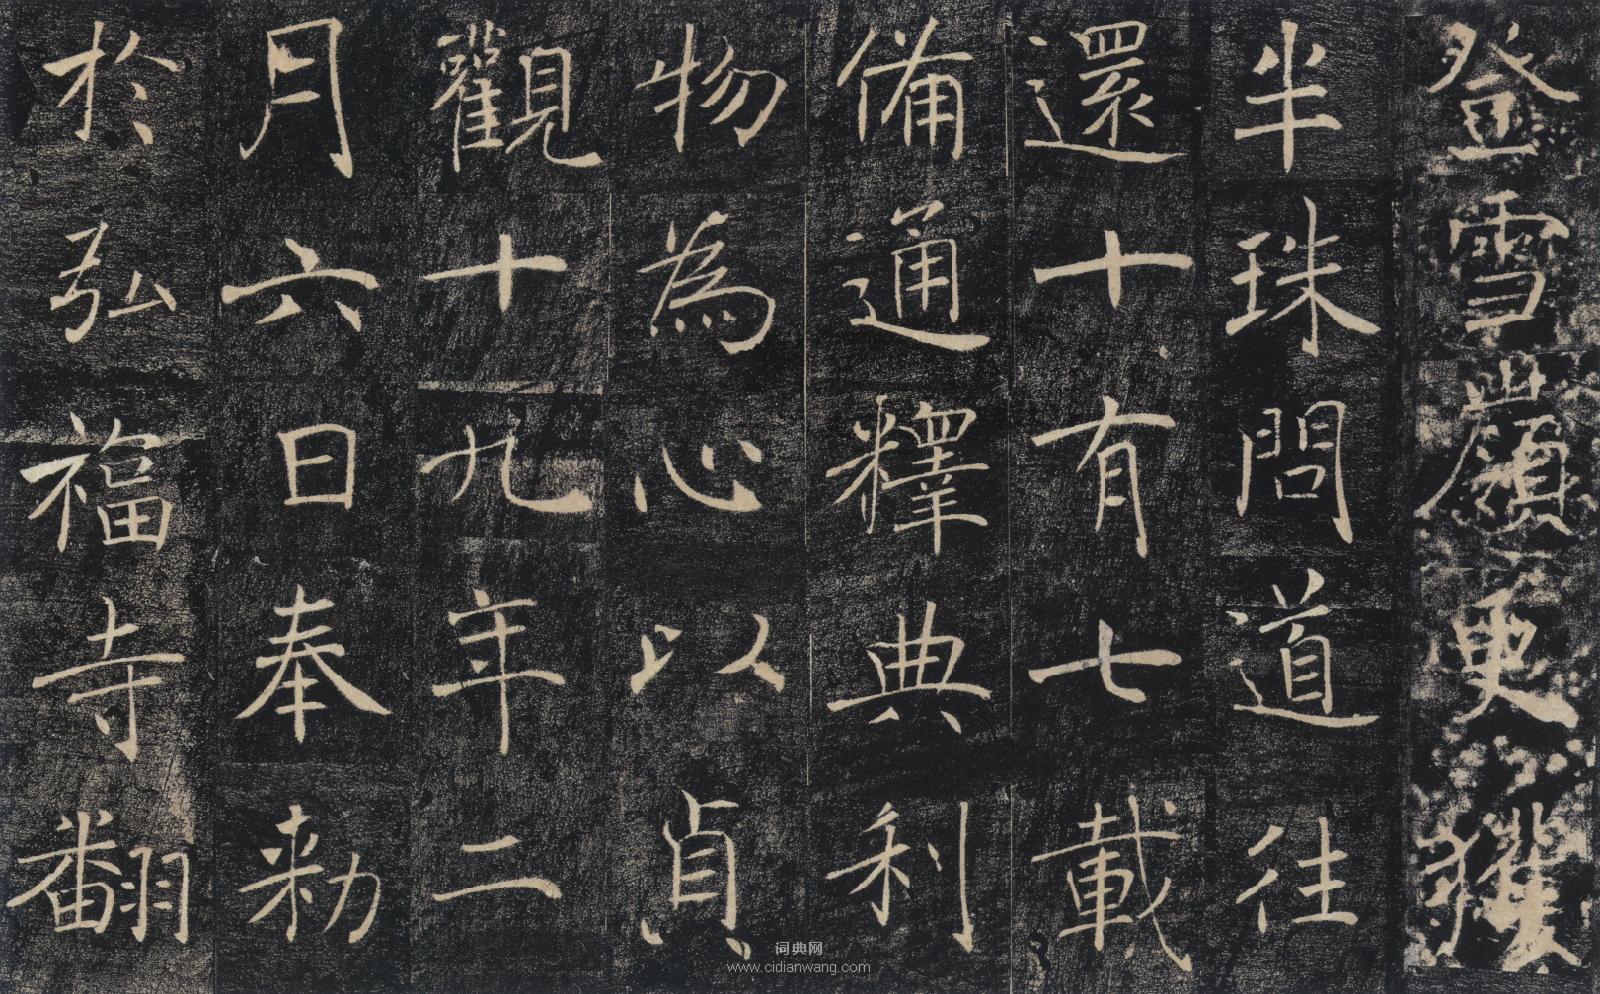 登雪嶺更獲
半珠問道往
還十有七載
備通釋典利
物為心以貞
觀十九年二
月六日奉勅
於弘福寺翻
词典网
www.cidianwang.com